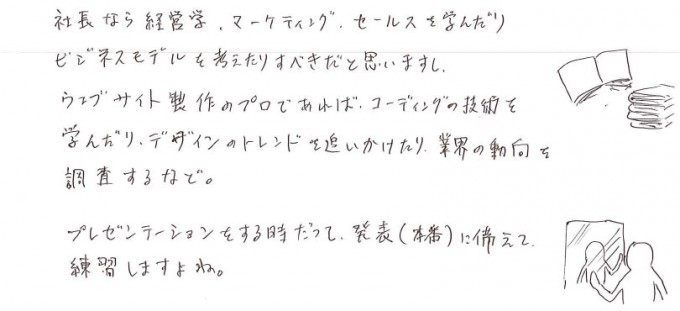 社長なら経営学、マーケティング、セールスを学んだり
ビジネスモデルを考えたりすべきだと思いますし、
ウェブサイト製作のプロであれば、コーディングの技術を
学んだり、デザインのトレンドを追いかけたり、業界の動向を
調査するなど。
プレゼンテーションをする時だって、発表(本番)に備えて、
練習しますよね。